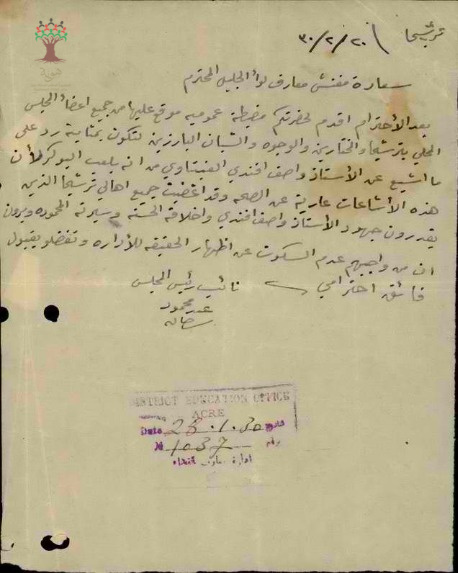 ترشيحا
سعادة مفتش معارف لواء الجليل المحترم
بعد الأحترام اقدم لحضرتكم مضبطة عموميه موقع عليها من جميع اعضاء المجلس
المحلي بترشيحا والمختارين والوجوه والشبان البارزين لتكون بمثابة رد على
ما اشيع عن الأستاذ واصف افندي من انه يلعب البوكر لأن
هذه الأشاعات عارية عن الصحه وقد اغضبت جميع اهالي ترشيحا الذين
يقدرون جهود الأستاذ واصف افندي واخلاقه الحسنه وسيرته المحموده ويرون
ان من واجبهم عدم السكوت عن اظهار الحقيقه للأداره وتفضلو بقبول
فائق احترامي نائب رئيس المجلس
محمود
DISTRICT EDUCATION OFFICE
ACRE
Date 23.1.30
No 1037